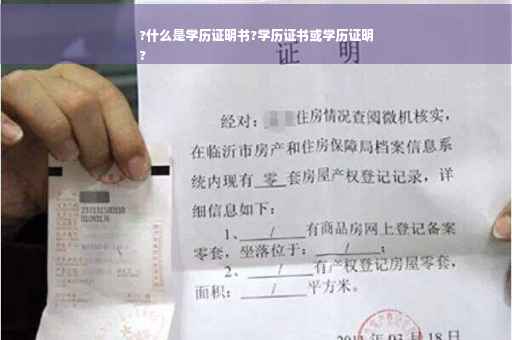 ?什么是学历证明书?学历证书或学历证明
?
证 明
经对: 住房情况查阅微机核实,
在临沂市房产和住房保障局档案信息系
统内现有 零 套房屋产权登记记录,详
细信息如下:
1、 / 有商品房网上登记备案
零套,坐落位于: / ;
2、 / 有产权登记房屋零套,
面积: / 平方米。
03月18日